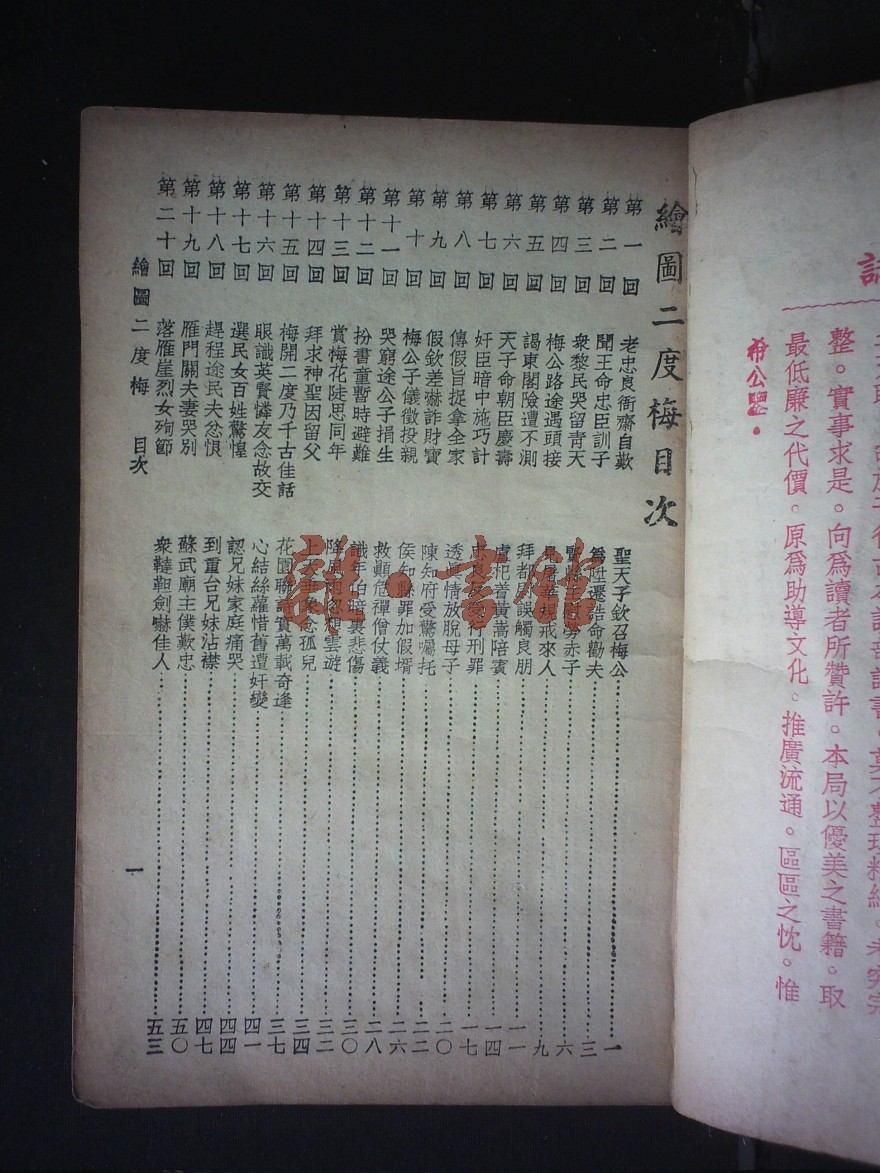 整理精細。考究完
整。實事求是。向爲讀者所贊許。本局以優美之書籍。取
最低廉之代價。原爲助導文化。推廣流通。區區之忱。惟
希公鑒。
繪圖二度梅目次
第一回 老忠良衙齋自歎 聖天子欽召梅公 一
第二回 聞王命忠臣訓子 爲陞遷誥命勸夫 三
第三回 衆黎民哭留青天 勞赤子 六
第四回 梅公路途遇頭接 戒來人 九
第五回 謁東閣險遭不測 拜都 誤觸良朋 一一
第六回 天子命朝臣慶壽 盧杞 黃嵩陪賓 一四
第七回 奸臣暗中施巧計 忠良 刑罪 一七
第八回 傳假旨捉拿全家 透眞情放脫母子 二〇
第九回 假欽差嚇詐財寶 陳知府受驚囑托 二二
第十回 梅公子儀徵投親 侯知縣罪加假壻 二六
第十一回 哭窮途公子捐生 救顚危禪僧仗義 二八
第十二回 扮書童暫時避難 識年伯暗裏悲傷 三〇
第十三回 賞梅花陡思同年 降 雨忽 雲遊 三二
第十四回 拜求神聖因留父 上天垂象念孤兒 三四
第十五回 梅開二度乃千古佳話 花園聯詩實萬載奇逢 三七
第十六回 眼識英賢憐友念故交 心結絲蘿惜舊遭奸變 四一
第十七回 選民女百姓驚惶 認兄妹家庭痛哭 四四
第十八回 趕程途民夫忿恨 到重台兄妹沾襟 四七
第十九回 雁門關夫妻哭別 蘇武廟主僕歎忠 五〇
第二十回 落雁崖烈女殉節 衆韃靼劍嚇佳人 五三
繪圖二度梅 目次 一
雜·書館